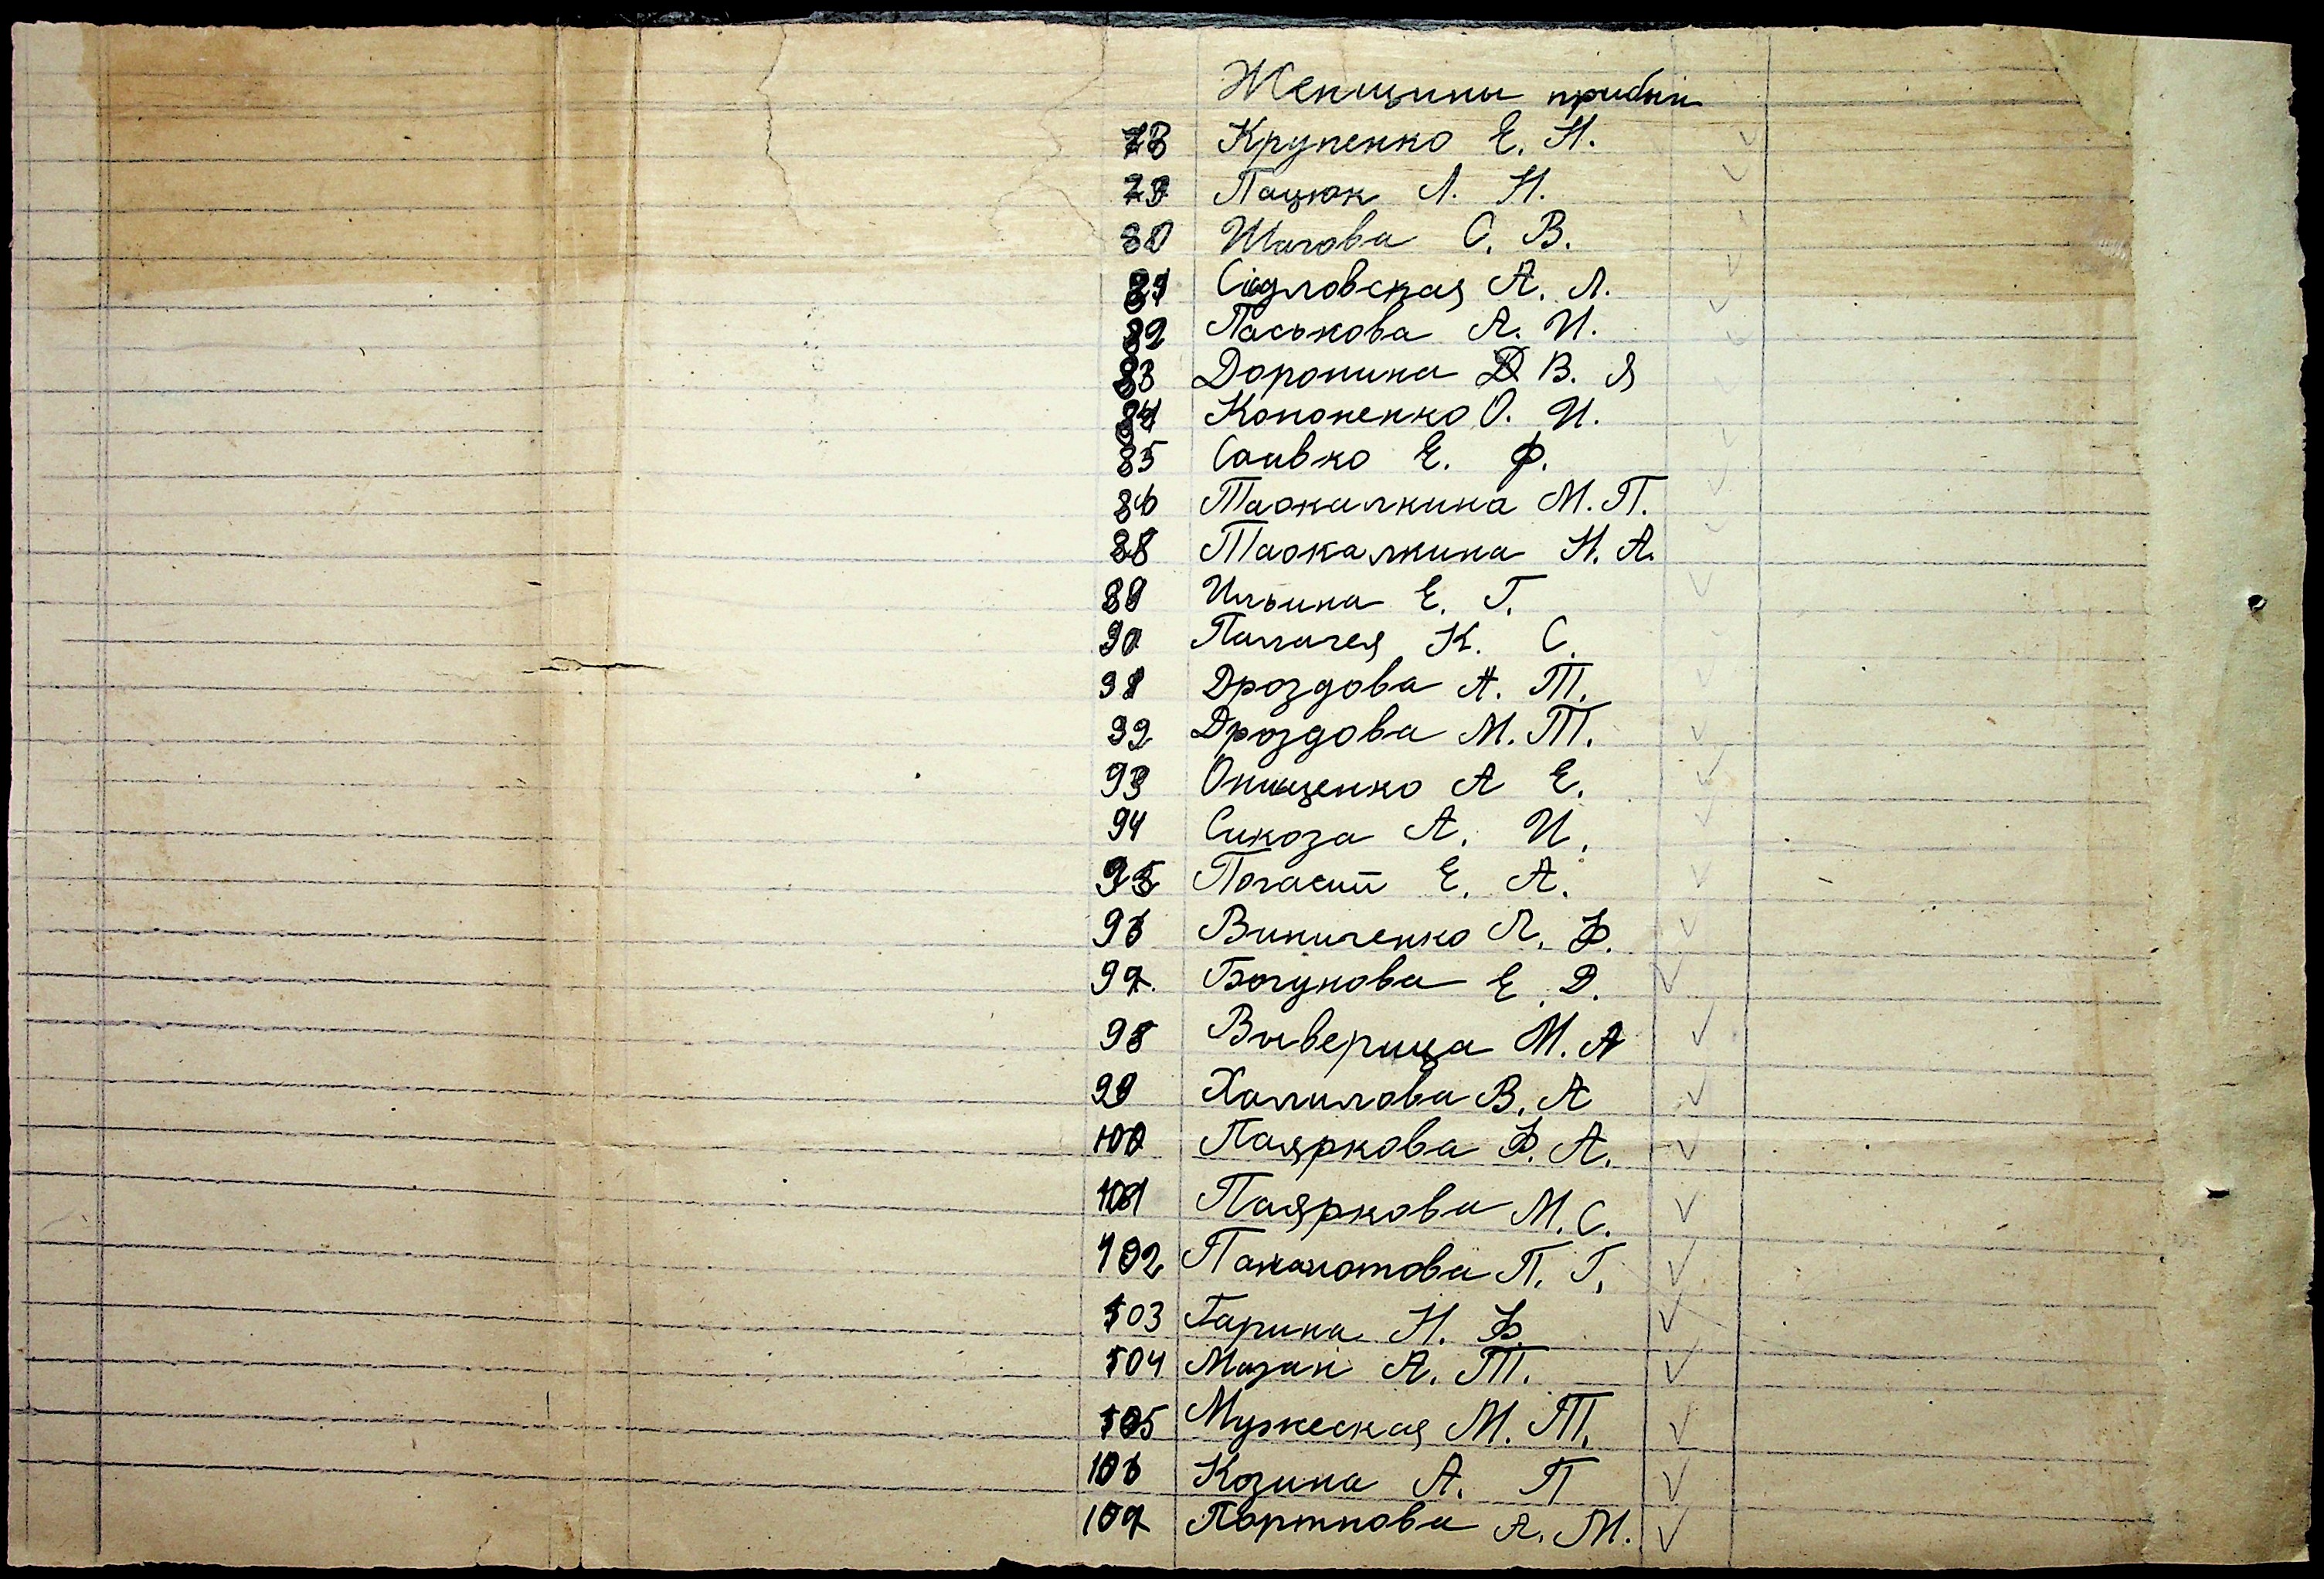 Женщины прибыли
78 Крупенко Е. Н.
79 Пацюк Л. Н.
80 Шагова С. В.
81 Сидловская А. Л.
82 Паськова А. И.
83 Доронина В. Я
84 Кононенко О. И.
85 Саивко Е. Ф.
86 Таокалкина М. П.
88 Таокалкина Н. А.
89 Ильина Е. Г.
90 Палагея К. С.
91 Дроздова А. Т.
92 Дроздова М. Т.
93 Онищенко А Е.
94 Сикоза А. И.
95 Погасий Е. А.
96 Виниченко Л. Ф.
97. Богунова Е. Д.
98 Виверица М. А
99 Халилова В. А
100 Пояркова Ф. А.
101 Пояркова М. С.
102 П. Г.
103 Гарина Н. Ф.
104 Мазан А. Т.
105 Мужеская М. Т.
106 Козина А. П
107 Портнова А. М.